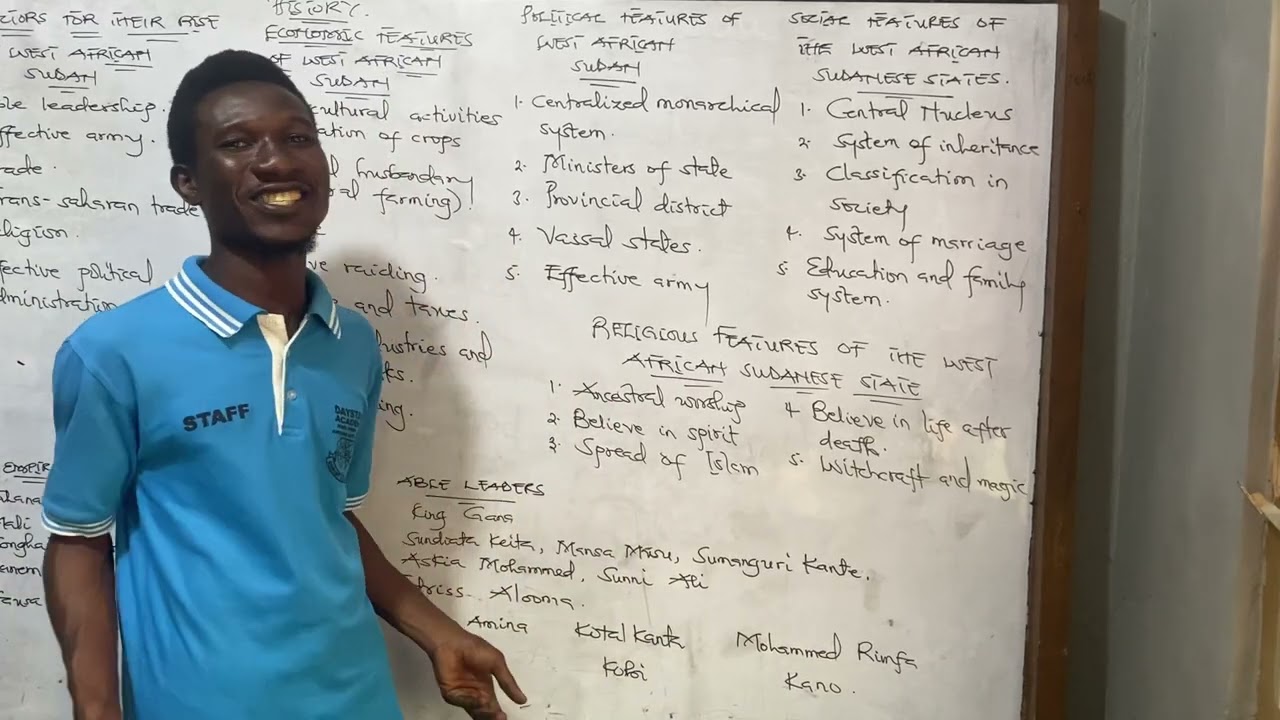 FOR THEIR RISE
WEST AFRICAN
SUDAN
leadership.
army.
Trans-saharan trade
political
HISTORY.
ECONOMIC FEATURES
OF WEST AFRICAN
SUDAN
activities
of crops
husbandary
farming)
raiding.
and taxes.
and
POLITICAL FEATURES OF
WEST AFRICAN
SUDAN
1. Centralized monarchical
system.
2. Ministers of state
3. Provincial district
4. Vassal states.
5. Effective army
SOCIAL FEATURES OF
THE WEST AFRICAN
SUDANESE STATES.
1. Central Nucleus
2. System of inheritance
3. Classification in
society
4. System of marriage
5. Education and family
system.
RELIGIOUS FEATURES OF THE WEST
AFRICAN SUDANESE STATE
1. Ancestral worship
2. Believe in spirit
3. Spread of Islam
4 Believe in life after
death.
5. Witchcraft and magic
ABLE LEADERS
King Gana
Sundiata Keita, Mansa Musu, Sumanguri Kante.
Askia Mohammed, Sunni Ali
Alooma.
Amina Kotal Kanta Mohammed Rimfa
Kano.
STAFF